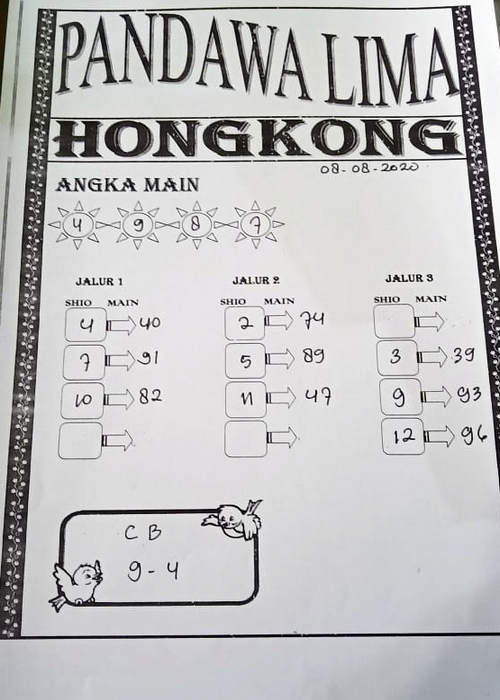 PANDAWA LIMA
HONGKONG
08-08-2020
ANGKA MAIN
4 9 8 7
JALUR 1 JALUR 2 JALUR 3
SHIO MAIN SHIO MAIN SHIO MAIN
4 40 2 74
7 91 5 89 3 39
10 82 11 47 9 93
12 96
CB
9-4